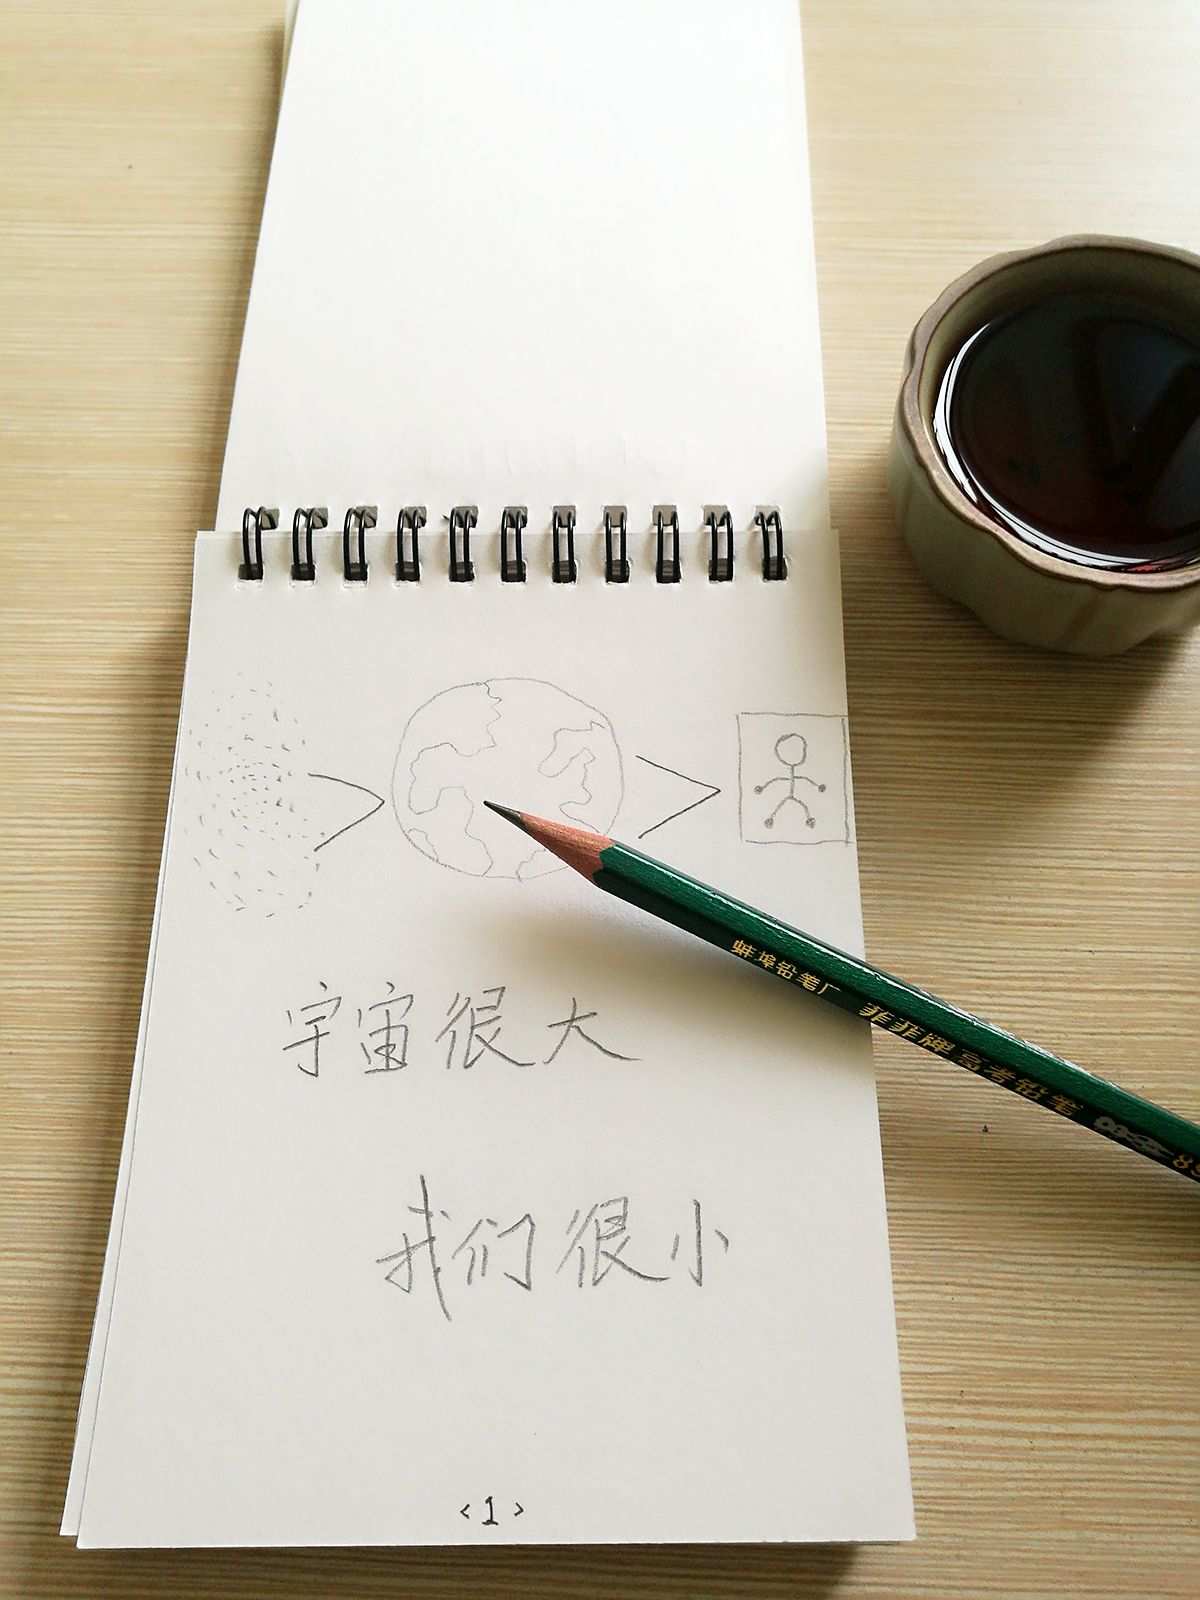 蚌埠铅笔厂 菲菲牌高考铅笔
宇宙很大
我们很小
<1>